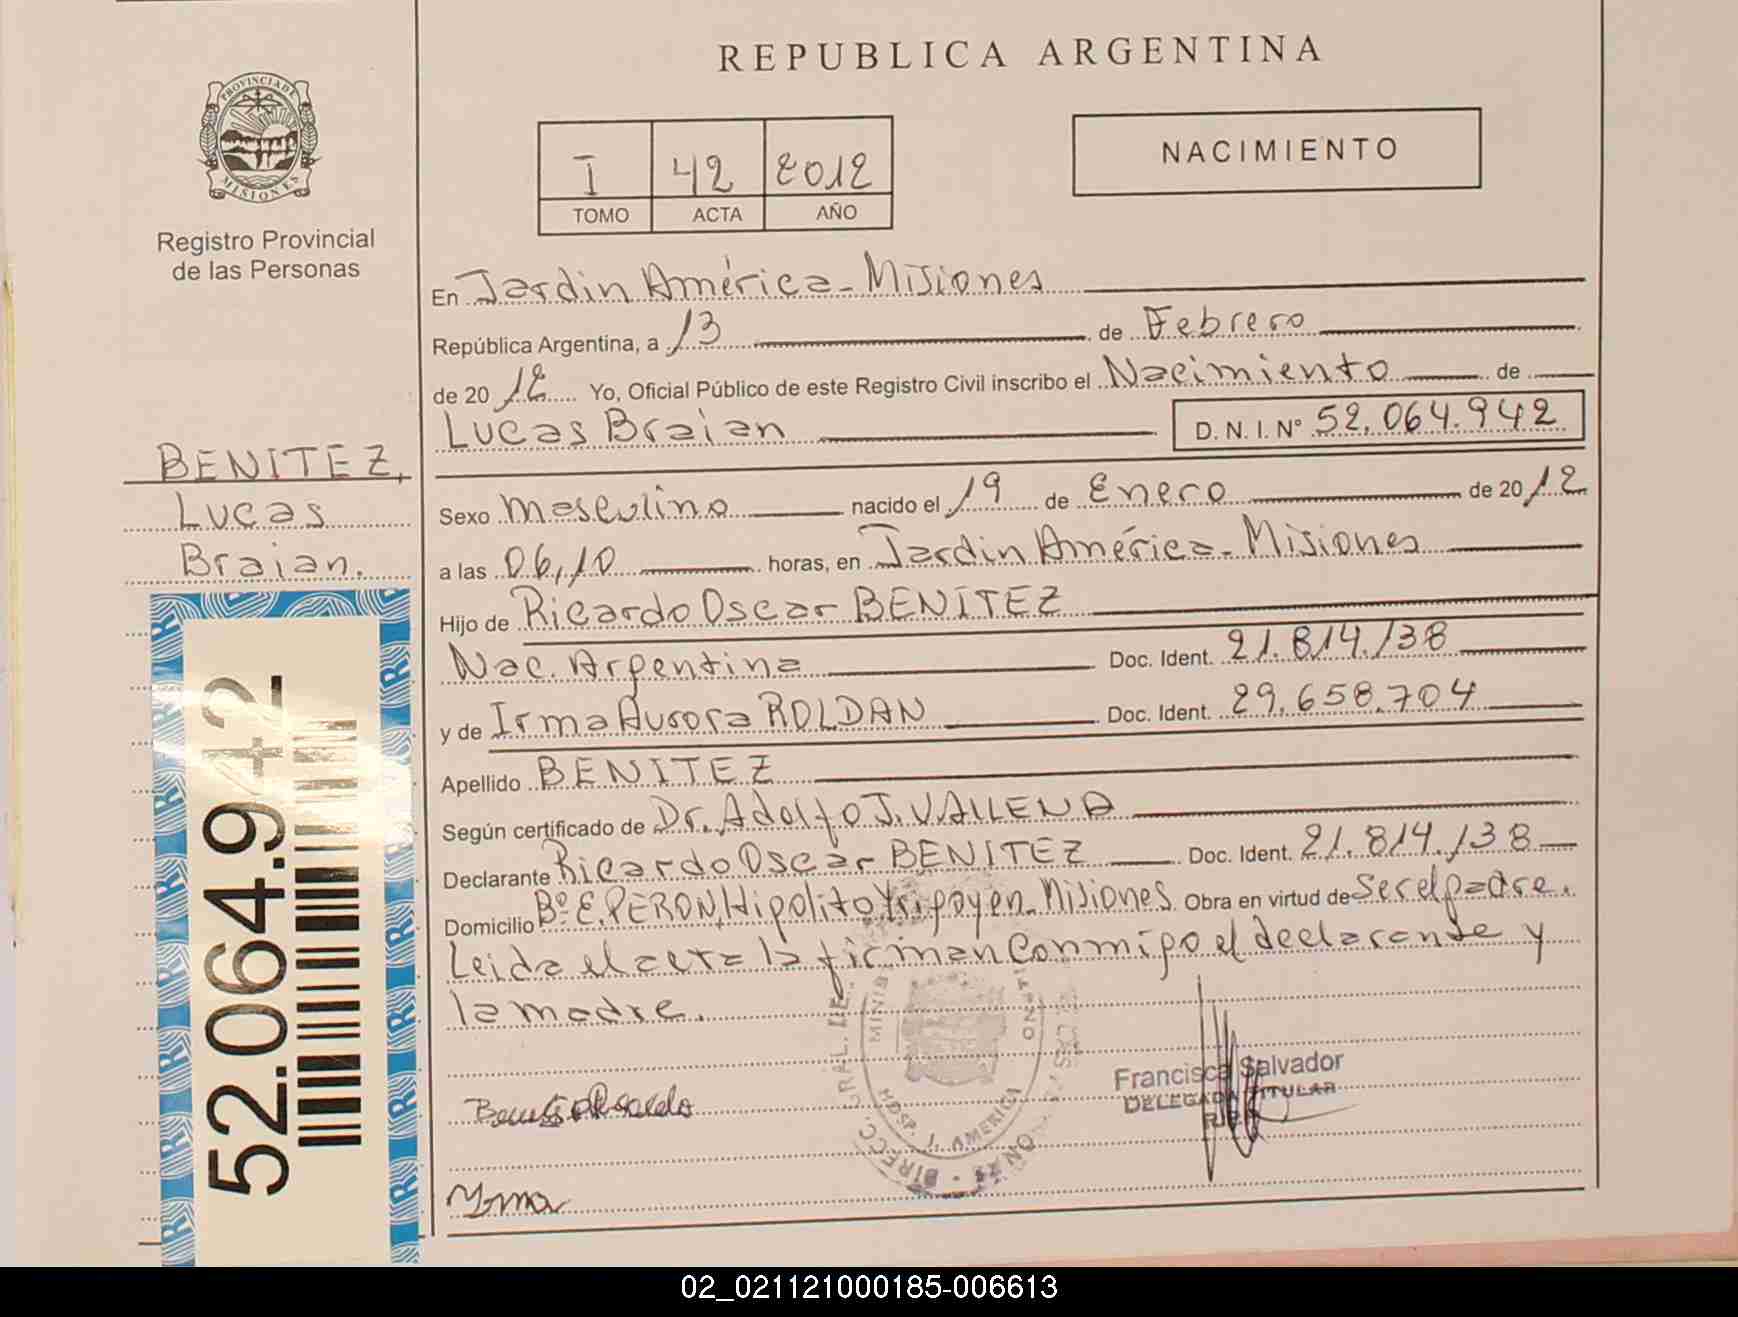 REPUBLICA ARGENTINA
PROVINCIA DE MISIONES
Registro Provincial
de las Personas
I 42 2012
TOMO ACTA AÑO
NACIMIENTO
En Jardin América - Misiones
República Argentina, a 13 de Febrero
de 2012 Yo, Oficial Público de este Registro Civil inscribo el Nacimiento de
Lucas Braian D. N. I. Nº 52.064.942
BENITEZ,
Lucas
Braian.
Sexo Masculino nacido el 19 de Enero de 2012
a las 06,10 horas, en Jardin América - Misiones
Hijo de Ricardo Oscar BENITEZ
Nac. Argentina Doc. Ident. 21.814.138
y de Irma Aurora ROLDAN Doc. Ident. 29.658.704
Apellido BENITEZ
Según certificado de Dr. Adolfo J. VALLENA
Declarante Ricardo Oscar BENITEZ Doc. Ident. 21.814.138
Domicilio Bº E. PERON, Hipolito Yrigoyen - Misiones Obra en virtud de ser el padre.
Leida el acta la firman conmigo el declarante y
la madre.
52.064.942
HOSP. J. AMERICA
Francisca Salvador
DELEGADA TITULAR
Irma
02_021121000185-006613